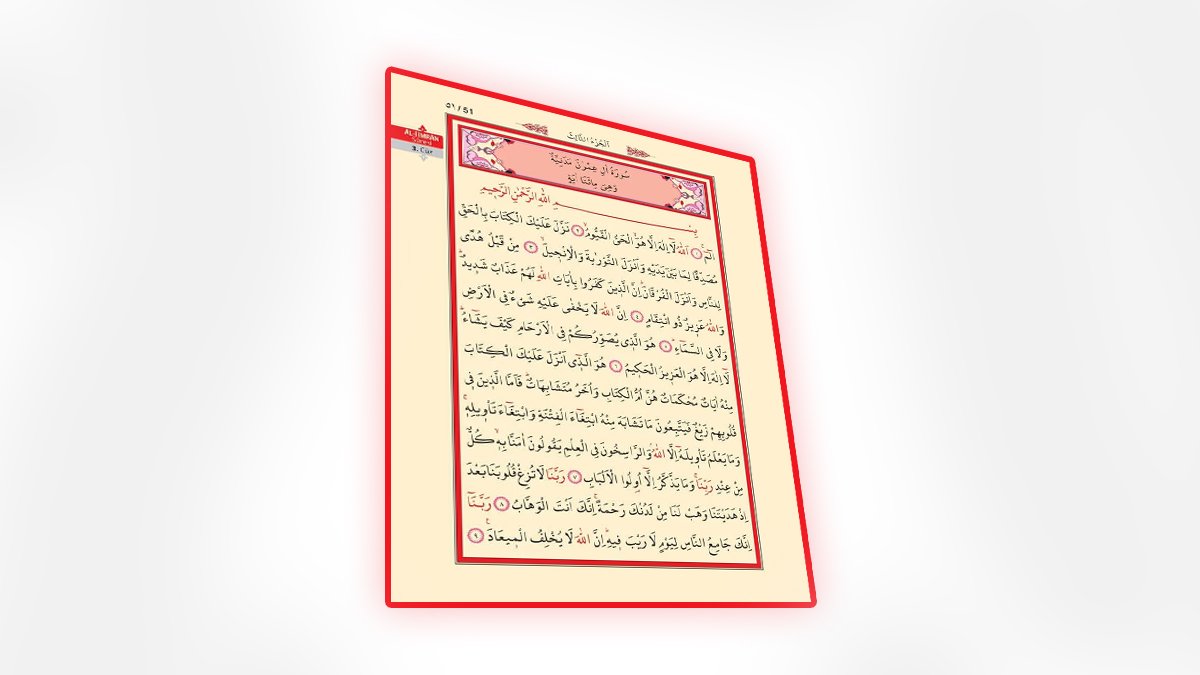 ٥١ / 51
اَلْجُزْءُ الثَّالِثُ
AL-İ İMRAN
Sûresi
3. Cüz
سُورَةُ اٰلِ عِمْرٰنَ مَدَنِيَّةٌ
وَهِىَ مِائَتَا اٰيَةٍ
بِسْــــــــمِ اللّٰهِ الرَّحْمٰنِ الرَّحٖيمِ
الٓمٓۚ ﴿١﴾ اَللّٰهُ لَٓا اِلٰهَ اِلَّا هُوَۙ الْحَىُّ الْقَيُّومُۜ ﴿٢﴾ نَزَّلَ عَلَيْكَ الْكِتَابَ بِالْحَقِّ
مُصَدِّقًا لِمَا بَيْنَ يَدَيْهِ وَاَنْزَلَ التَّوْرٰيةَ وَالْاِنْجٖيلَۙ ﴿٣﴾ مِنْ قَبْلُ هُدًى
لِلنَّاسِ وَاَنْزَلَ الْفُرْقَانَۜ اِنَّ الَّذٖينَ كَفَرُوا بِاٰيَاتِ اللّٰهِ لَهُمْ عَذَابٌ شَدٖيدٌۜ
وَاللّٰهُ عَزٖيزٌ ذُو انْتِقَامٍ ﴿٤﴾ اِنَّ اللّٰهَ لَا يَخْفٰى عَلَيْهِ شَیْءٌ فِى الْاَرْضِ
وَلَا فِى السَّمَٓاءِۜ ﴿٥﴾ هُوَ الَّذٖى يُصَوِّرُكُمْ فِى الْاَرْحَامِ كَيْفَ يَشَٓاءُۜ
لَٓا اِلٰهَ اِلَّا هُوَ الْعَزٖيزُ الْحَكٖيمُ ﴿٦﴾ هُوَ الَّذٖٓى اَنْزَلَ عَلَيْكَ الْكِتَابَ
مِنْهُ اٰيَاتٌ مُحْكَمَاتٌ هُنَّ اُمُّ الْكِتَابِ وَاُخَرُ مُتَشَابِهَاتٌۜ فَاَمَّا الَّذٖينَ فٖى
قُلُوبِهِمْ زَيْغٌ فَيَتَّبِعُونَ مَا تَشَابَهَ مِنْهُ ابْتِغَٓاءَ الْفِتْنَةِ وَابْتِغَٓاءَ تَأْوٖيلِهٖۚ
وَمَا يَعْلَمُ تَأْوٖيلَهُٓ اِلَّا اللّٰهُۢ وَالرَّاسِخُونَ فِى الْعِلْمِ يَقُولُونَ اٰمَنَّا بِهٖۙ كُلٌّ
مِنْ عِنْدِ رَبِّنَاۚ وَمَا يَذَّكَّرُ اِلَّٓا اُولُوا الْاَلْبَابِ ﴿٧﴾ رَبَّنَا لَا تُزِغْ قُلُوبَنَا بَعْدَ
اِذْ هَدَيْتَنَا وَهَبْ لَنَا مِنْ لَدُنْكَ رَحْمَةًۚ اِنَّكَ اَنْتَ الْوَهَّابُ ﴿٨﴾ رَبَّنَٓا
اِنَّكَ جَامِعُ النَّاسِ لِيَوْمٍ لَا رَيْبَ فٖيهِۜ اِنَّ اللّٰهَ لَا يُخْلِفُ الْمٖيعَادَ۟ ﴿٩﴾